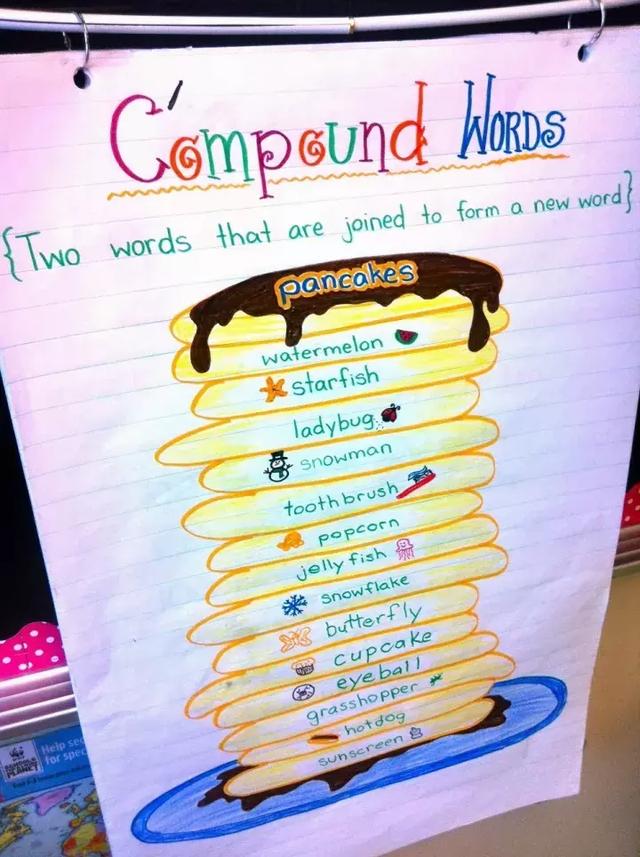 Compound Words
{Two words that are joined to form a new word}
pancakes
watermelon
starfish
ladybug
snowman
toothbrush
popcorn
jellyfish
snowflake
butterfly
cupcake
eyeball
grasshopper
hotdog
sunscreen
WWF
Help
for spec